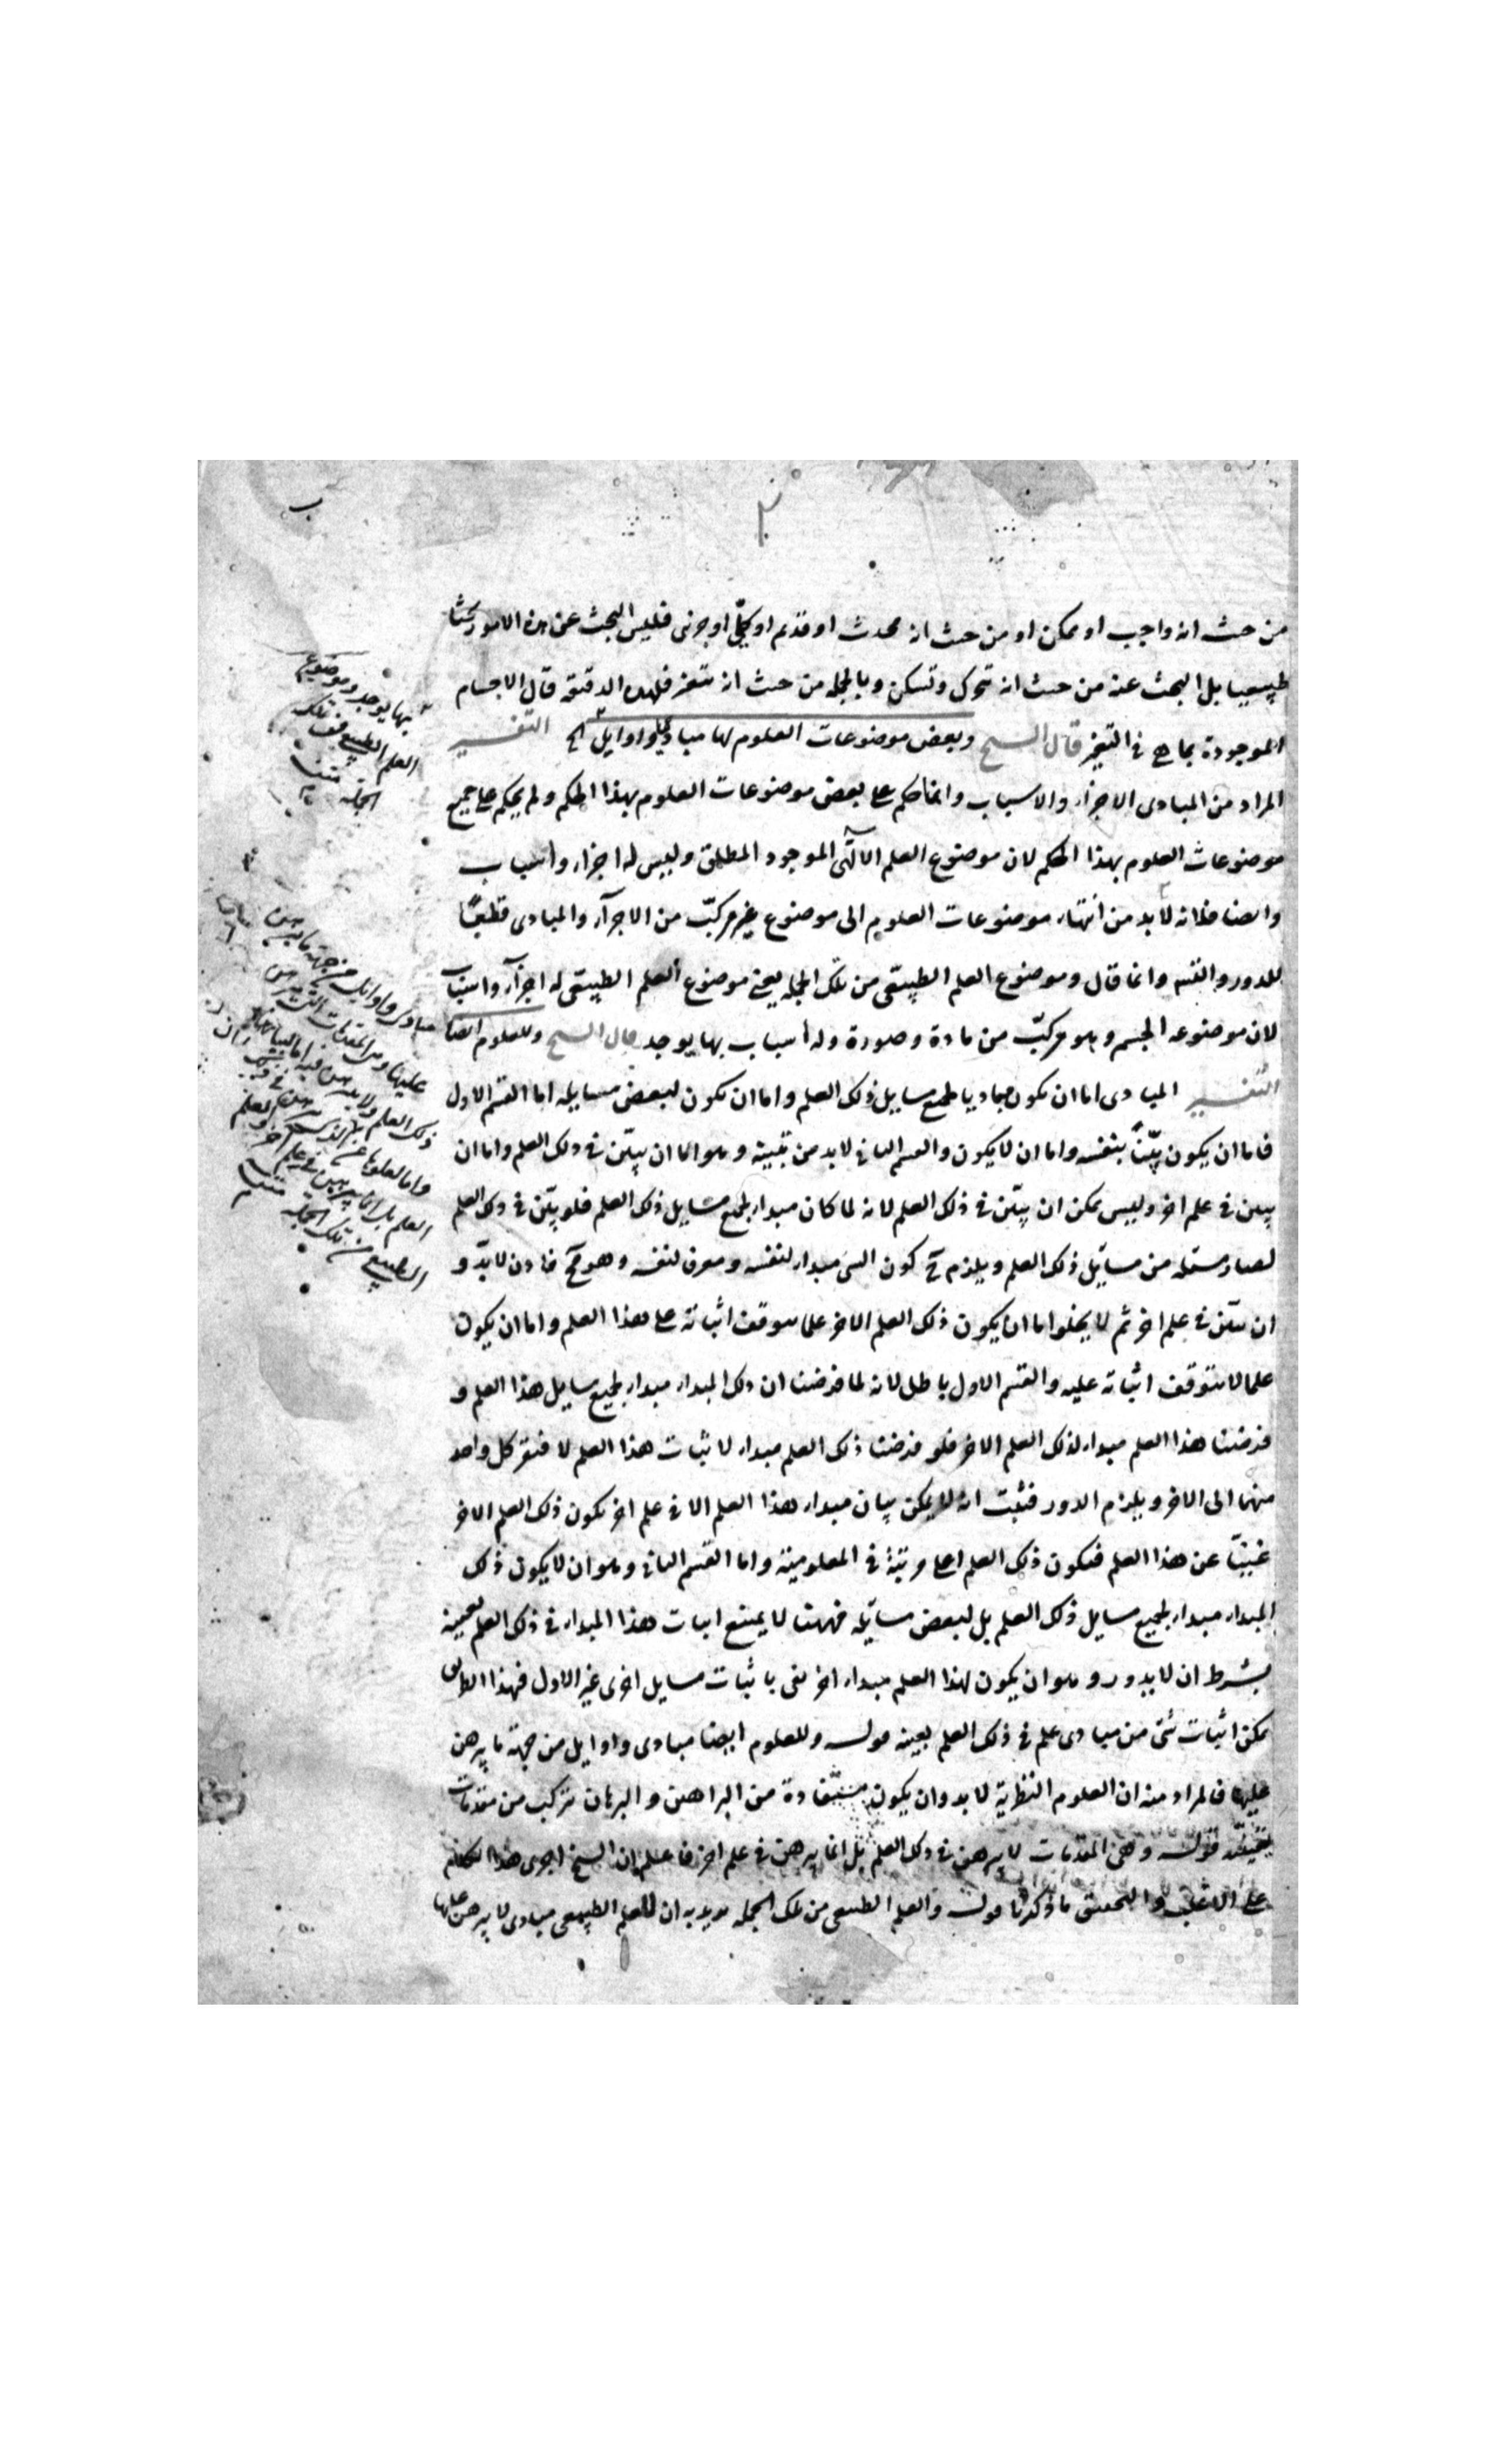 من حيث انه واجب او ممكن او من حيث انه محدث او قديم او كلّى او جزئى فليس البحث عن هذه الامور بحثا
طبيعيا بل البحث عنه من حيث انه تتحرك وتسكن وبالجمله من حيث انه متغير فلهذه الدقيقه قال الاجسام
الموجودة بما هى فى التغير قال الشيخ وبعض موضوعات العلوم لها مبادى واوايل الخ التفسير
المراد من المبادى الاجزاء والاسباب وانما حكم على بعض موضوعات العلوم بهذا الحكم ولم يحكم على جميع
موضوعات العلوم بهذا الحكم لان موضوع العلم الالٓهى الموجود المطلق وليس له اجزاء واسباب
وايضا فلانه لا بد من انتهاء موضوعات العلوم الى موضوع غير مركبّ من الاجزآء والمبادى قطعًا
للدور والتسه وانما قال وموضوع العلم الطبيعّى من تلك الجمله يعنى موضوع العلم الطبيعى له اجزآء واسباب
لان موضوعه الجسم وهو مركبّ من مادة وصورة وله اسباب بها يوجد قال الشيخ وللعلوم ايضا
التفسير المبادى اما ان تكون مباديا لجميع مسايل ذلك العلم واما ان تكون لبعض مسايله اما القسم الاول
فاما ان يكون بيّنًا بنفسه واما ان لا يكون والقسم الثانى لا بد من تبيينه وهو اما ان يبيّن فى ذلك العلم واما ان
يبين فى علم اخر وليس يمكن ان يبيّن فى ذلك العلم لانه لما كان مبداء لجميع مسايل ذلك العلم فلو بيّن فى ذلك العلم
لصار مسئله من مسايٓل ذلك العلم ويلزم ح كون الشى مبداء لنفسه ومعرفا لنفسه وهو مح فاذن لا بدّ و
ان يبيّن فى علم اخر ثم لا يخلوا اما ان يكون ذلك العلم الاخر علما يتوقف اثباته على هذا العلم واما ان يكون
علما لا يتوقف اثباته عليه والقسم الاول باطل لانه لما فرضنا ان ذلك المبداء مبداء لجميع مسايل هذا العلم و
فرضنا هذا العلم مبداء لذلك العلم الاخر فلو فرضنا ذلك العلم مبداء لاثبات هذا العلم لافتقر كل واحد
منهما الى الاخر ويلزم الدور فثبت انه لا يمكن بيان مبداء هذا العلم الا فى علم اخر يكون ذلك العلم الاخر
غنيّا عن هذا العلم فيكون ذلك العلم اعلى رتبة فى المعلومية واما القسم الثانى وهو ان لا يكون ذلك
المبداء مبداء لجميع مسايل ذلك العلم بل لبعض مسايله فههنا لا يمتنع اثبات هذا المبداء فى ذلك العلم بعينه
بشرط ان لا يدور وهو ان يكون لهذا العلم مبداء اخر يفى باثبات مسايل اخرى غير الاول فبهذا الطريق
يمكن اثبات شئ من مبادى علم فى ذلك العلم بعينه قوله وللعلوم ايضا مبادى واوايل من جهة ما يبرهن
عليها فالمراد منه ان العلوم النظرية لا بد وان يكون مستفادة من البراهين والبرهان تركب من مقدمات
يقينية قوله وهى المقدمات لا يبرهن فى ذلك العلم بل انما يبرهن فى علم اخر فاعلم ان الشيخ اجرى هذا الكلام
على الاغلب والتحقيق ما ذكرنا قوله والعلم الطبيعى من تلك الجمله يريد به ان للعلم الطبيعى مبادى لا يبرهن عليها
بها يوجد وموضوع
العلم الطبيعى من تلك
الجمله متن
مبادى واوايل من جهة ما يبرهن
عليها وهى المقدمات التى تبرهن
ذلك العلم ولا يبرهن فيه اما لبيانها
العلم بل انما يبرهن فى علم اخر والعلم
الطبيعى من تلك الجمله متن